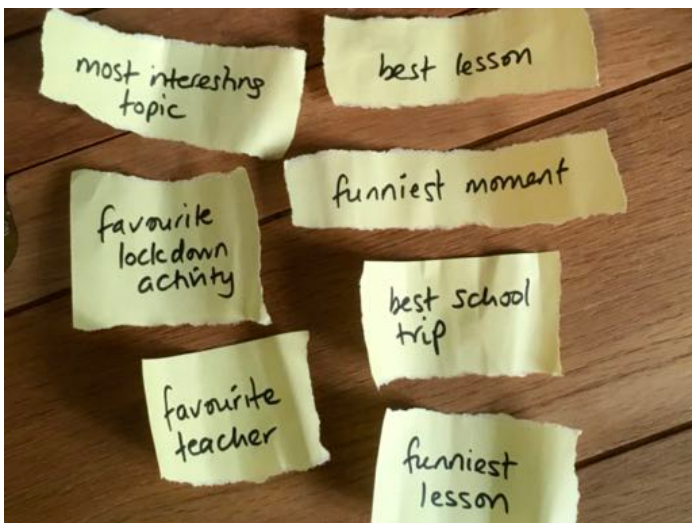 most interesting
topic
best lesson
funniest moment
favourite
lockdown
activity
best school
trip
favourite
teacher
funniest
lesson